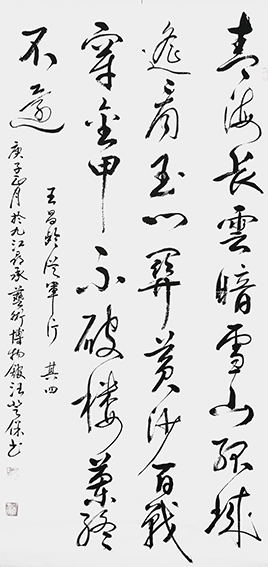 青海長雲暗雪山孤城
遙看玉門關黃沙百戰
穿金甲不破樓蘭終
不還
王昌齡從軍行 其四
庚子月於九江承藝術博物館汪芝保书